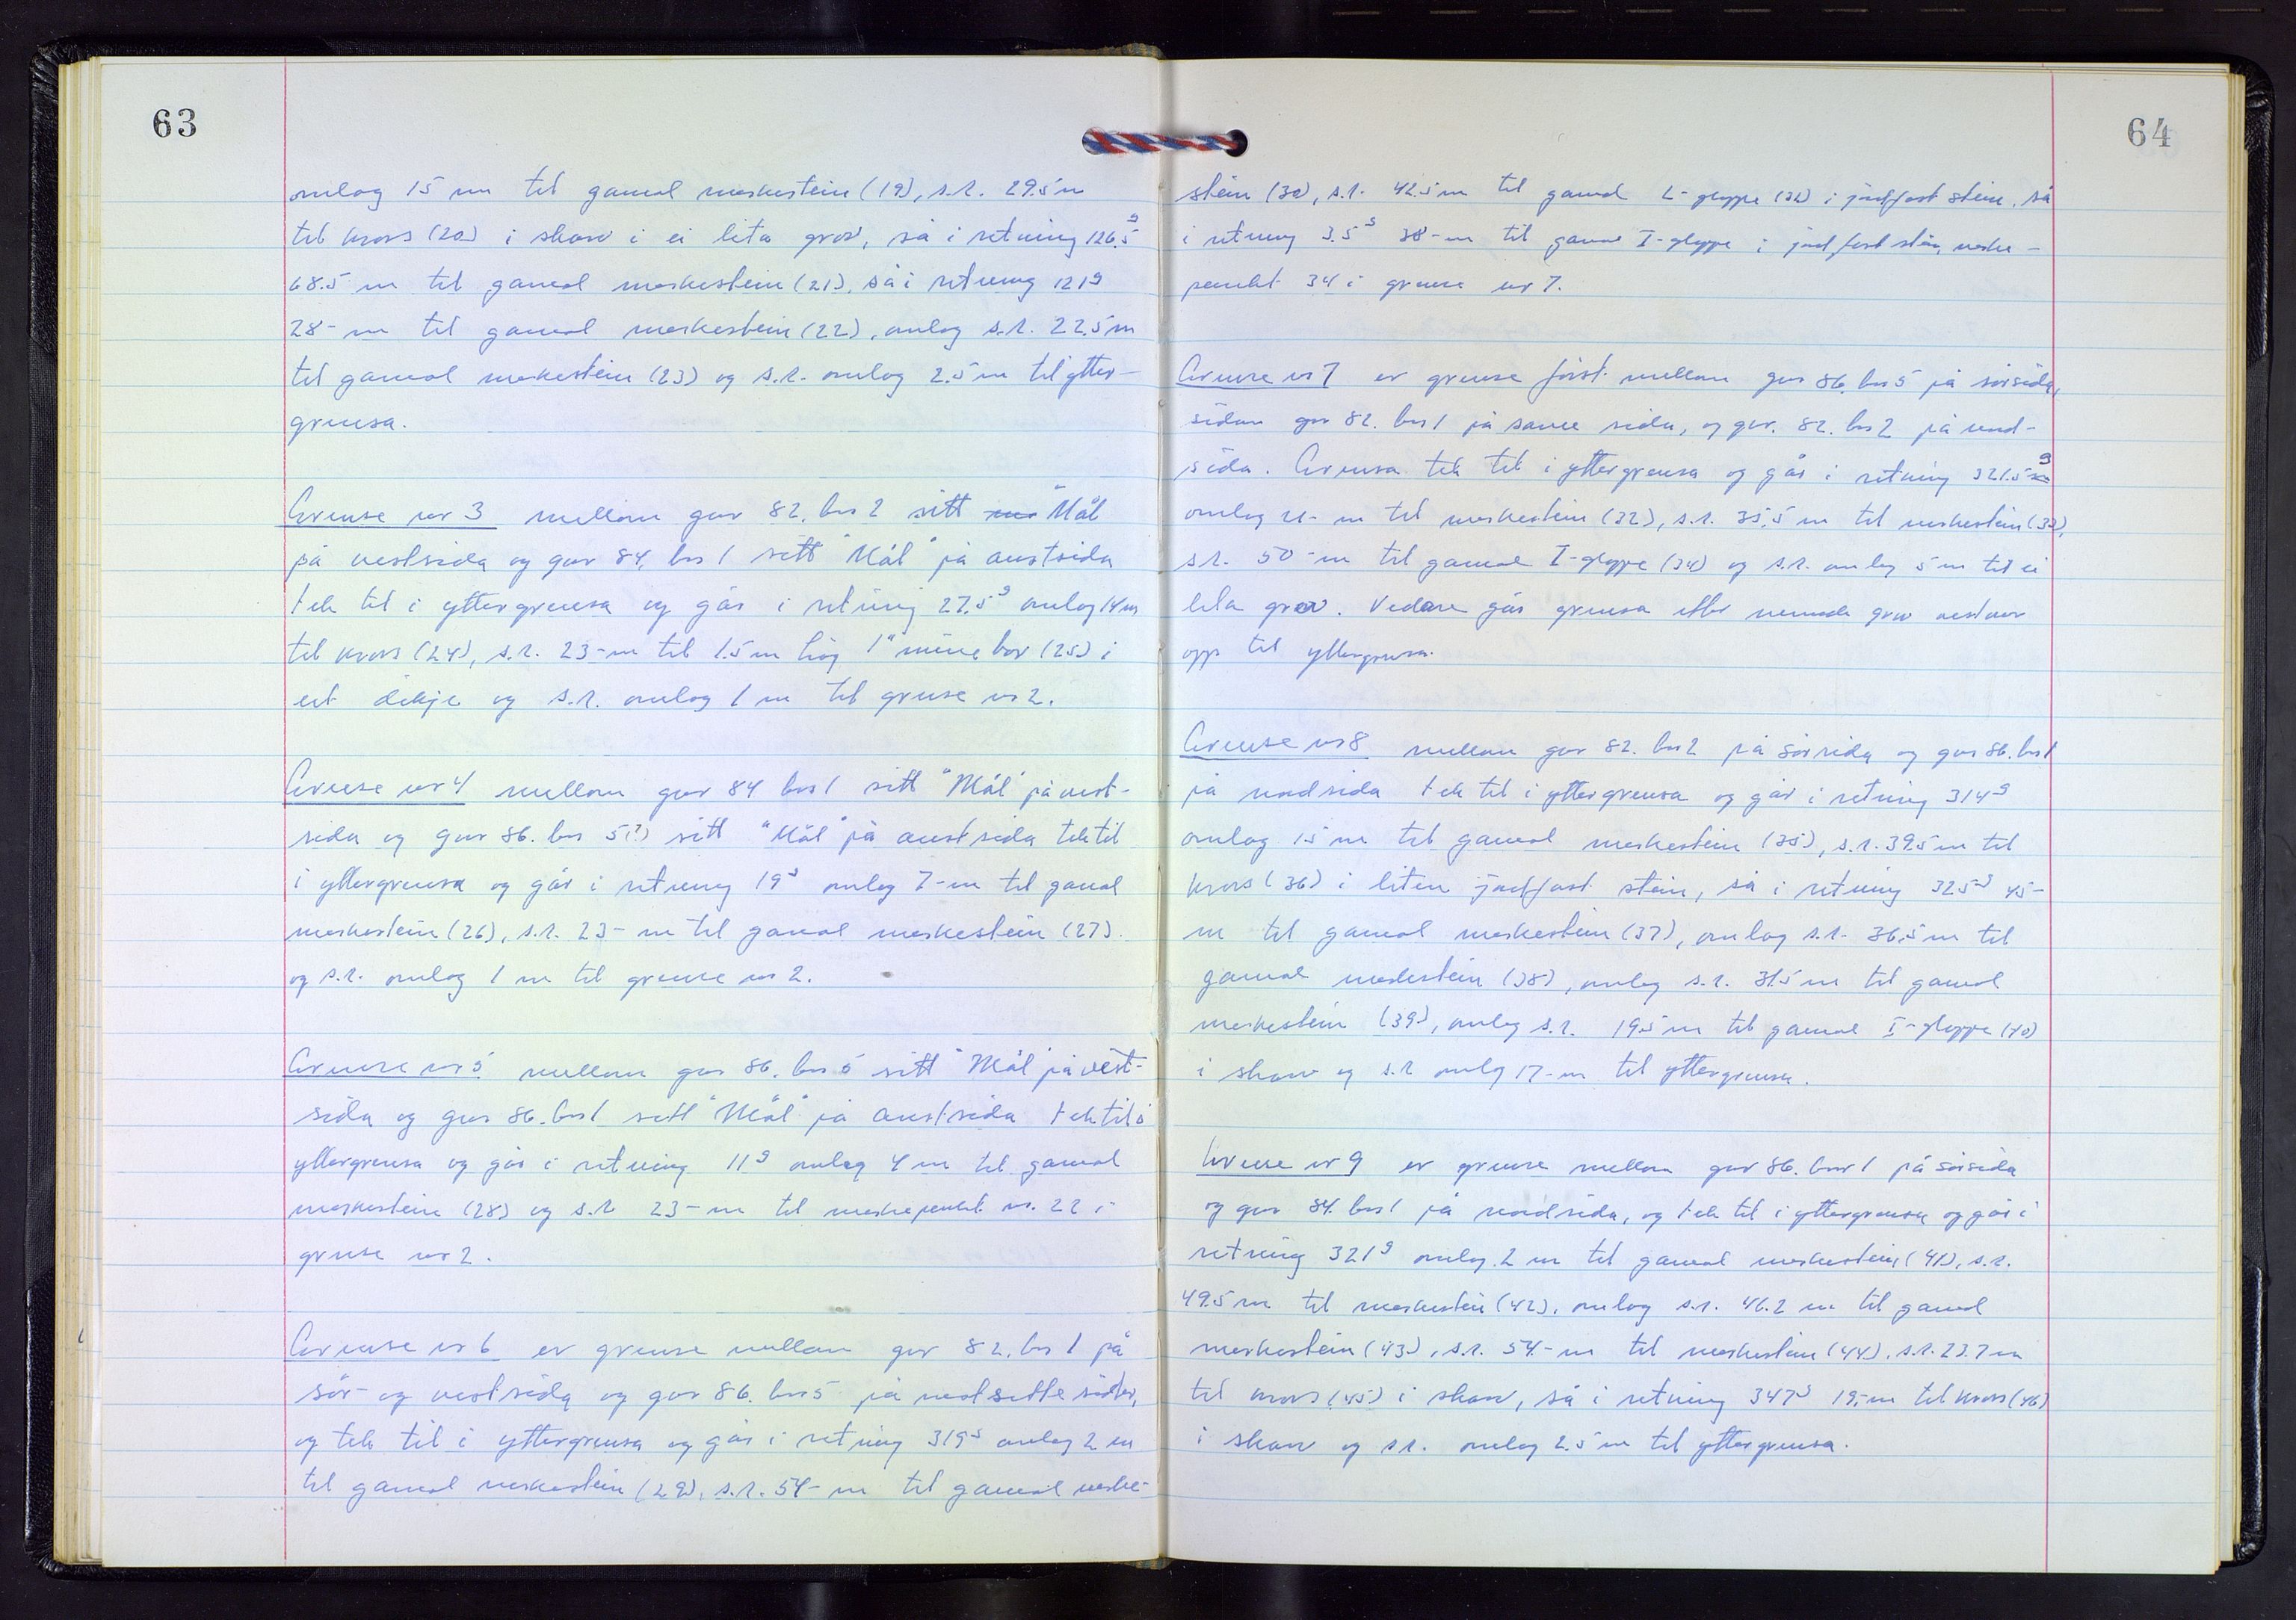 63
omlag 15 m til gamal merkestein (19), s.r. 29.5 m
til kross (20) i skarv i ei lita grov, så i retning 126.5g
68.5 m til gamal merkestein (21), så i retning 121g
28- m til gamal merkestein (22), omlag s.r. 22.5 m
til gamal merkestein (23) og s.r. omlag 2.5 m til ytter-
grensa.
Grense nr 3 mellom gnr 82, bnr 2 sitt "Mål
på vestsida og gnr 84, bnr 1 sitt "Mål" på austsida
tek til i yttergrensa og går i retning 27.5g omlag 14 m
til kross (24), s.r. 23- m til 1.5 m høg 1" minebor (25) i
eit dikje og s.r. omlag 1 m til grense nr 2.
Grense nr 4 mellom gnr 84 bnr 1 sitt "Mål" på vest-
sida og gnr 86. bnr 5(?) sitt "Mål" på austsida tek til
i yttergrensa og går i retning 19g omlag 7- m til gamal
merkestein (26), s.r. 23- m til gamal merkestein (27).
og s.r. omlag 1 m til grense nr 2.
Grense nr 5 mellom gnr 86. bnr 5 sitt "Mål" på vest-
sida og gnr 86. bnr 1 sitt "Mål" på austsida tek til i
yttergrensa og går i retning 11g omlag 4 m til gamal
merkestein (28) og s.r. 23- m til merkepunkt nr. 22 i
grense nr 2.
Grense nr 6 er grense mellom gnr 82, bnr 1 på
sør- og vestsida og gnr 86. bnr 5 på motsette sider,
og tek til i yttergrensa og går i retning 319g omlag 2 m
til gamal merkestein (29), s.r. 54- m til gamal merke-
64
stein (30), s.r. 42.5 m til gamal L-gloppe (31) i jordfast stein, så
i retning 3.5g 38- m til gamal I-gloppe i jordfast stein, merke-
punkt 34 i grense nr 7.
Grense nr 7 er grense først mellom gnr 86, bnr 5 på sørsida,
sidan gnr 82. bnr 1 på same sida, og gnr. 82. bnr 2 på nord-
sida. Grensa tek til i yttergrensa og går i retning 321.5g
omlag 21- m til merkestein (32), s.r. 35.5 m til merkestein (33),
s.r. 50- m til gamal I-gloppe (34) og s.r. omlag 5 m til ei
lita grov. Vedare går grensa etter nemnde grov
opp til yttergrensa.
Grense nr 8 mellom gnr 82. bnr 2 på sørsida og gnr 86. bnr 1
på nordsida tek til i yttergrensa og går i retning 314g
omlag 15 m til gamal merkestein (35), s.r. 39.5 m til
kross (36) i liten jordfast stein, så i retning 325g 45-
m til gamal merkestein (37), omlag s.r. 36.5 m til
gamal merkestein (38), omlag s.r. 31.5 m til gamal
merkestein (39), omlag s.r. 19.5 m til gamal I-gloppe (40)
i skarv og s.r. omlag 17- m til yttergrensa.
Grense nr 9 er grense mellom gnr 86. bnr 1 på sørsida
og gnr 84. bnr 1 på nordsida, og tek til i yttergrensa og går i
retning 321g omlag 2 m til gamal merkestein (41), s.r.
49.5 m til merkestein (42), omlag s.r. 46.2 m til gamal
merkestein (43), s.r. 54.- m til merkestein (44), s.r. 23.7 m
til kross (45) i skarv, så i retning 347g 19.- m til kross (46)
i skarv og s.r. omlag 2.5 m til yttergrensa.